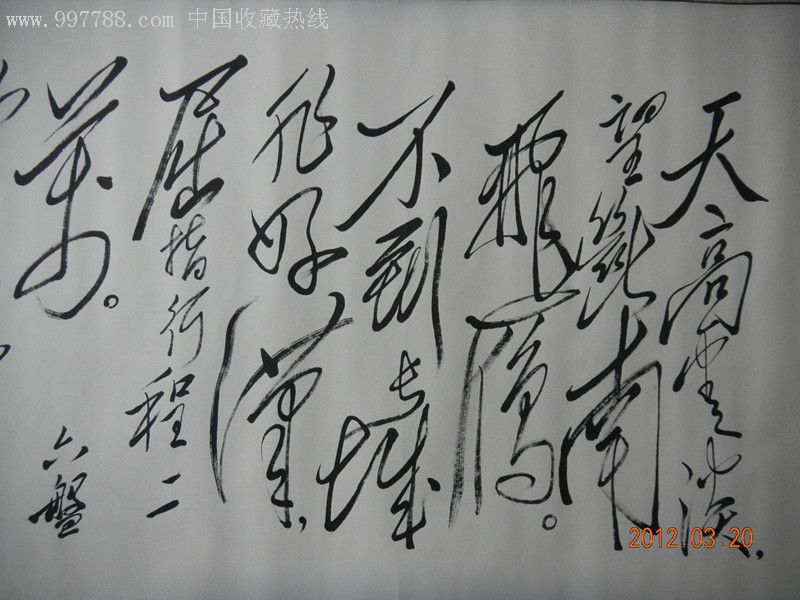 www.997788.com 中国收藏热线
天高云淡，
望断南
飞雁。
不到长城
非好汉，
屈指行程二
万。
六盘
2012.03.20